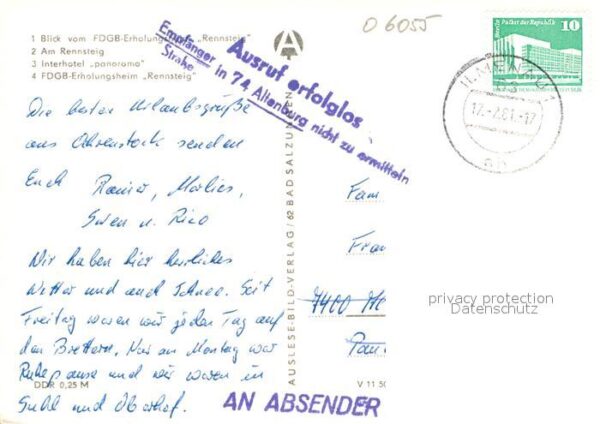 1 Blick vom FDGB-Erholungsheim „Rennsteig"
2 Am Rennsteig
3 Interhotel „panorama"
4 FDGB-Erholungsheim „Rennsteig"
O 6055
Ausruf erfolglos
Empfänger in 74 Altenburg nicht zu ermitteln
Straße
10
17.-2.81.-17
Die besten Urlaubsgrüße
aus Oehrenstock senden
Euch Rainer, Marlies,
Swen u. Rico
Wir haben hier herrliches
Wetter und auch Schnee. Seit
Freitag waren wir jeden Tag auf
den Brettern. Nur am Montag war
Ruhepause und wir waren in
Suhl und Oberhof.
DDR 0,25 M
AUSLESE-BILD-VERLAG / 62 BAD SALZUNGEN
Fam
7400
V 11 50
AN ABSENDER
privacy protection
Datenschutz